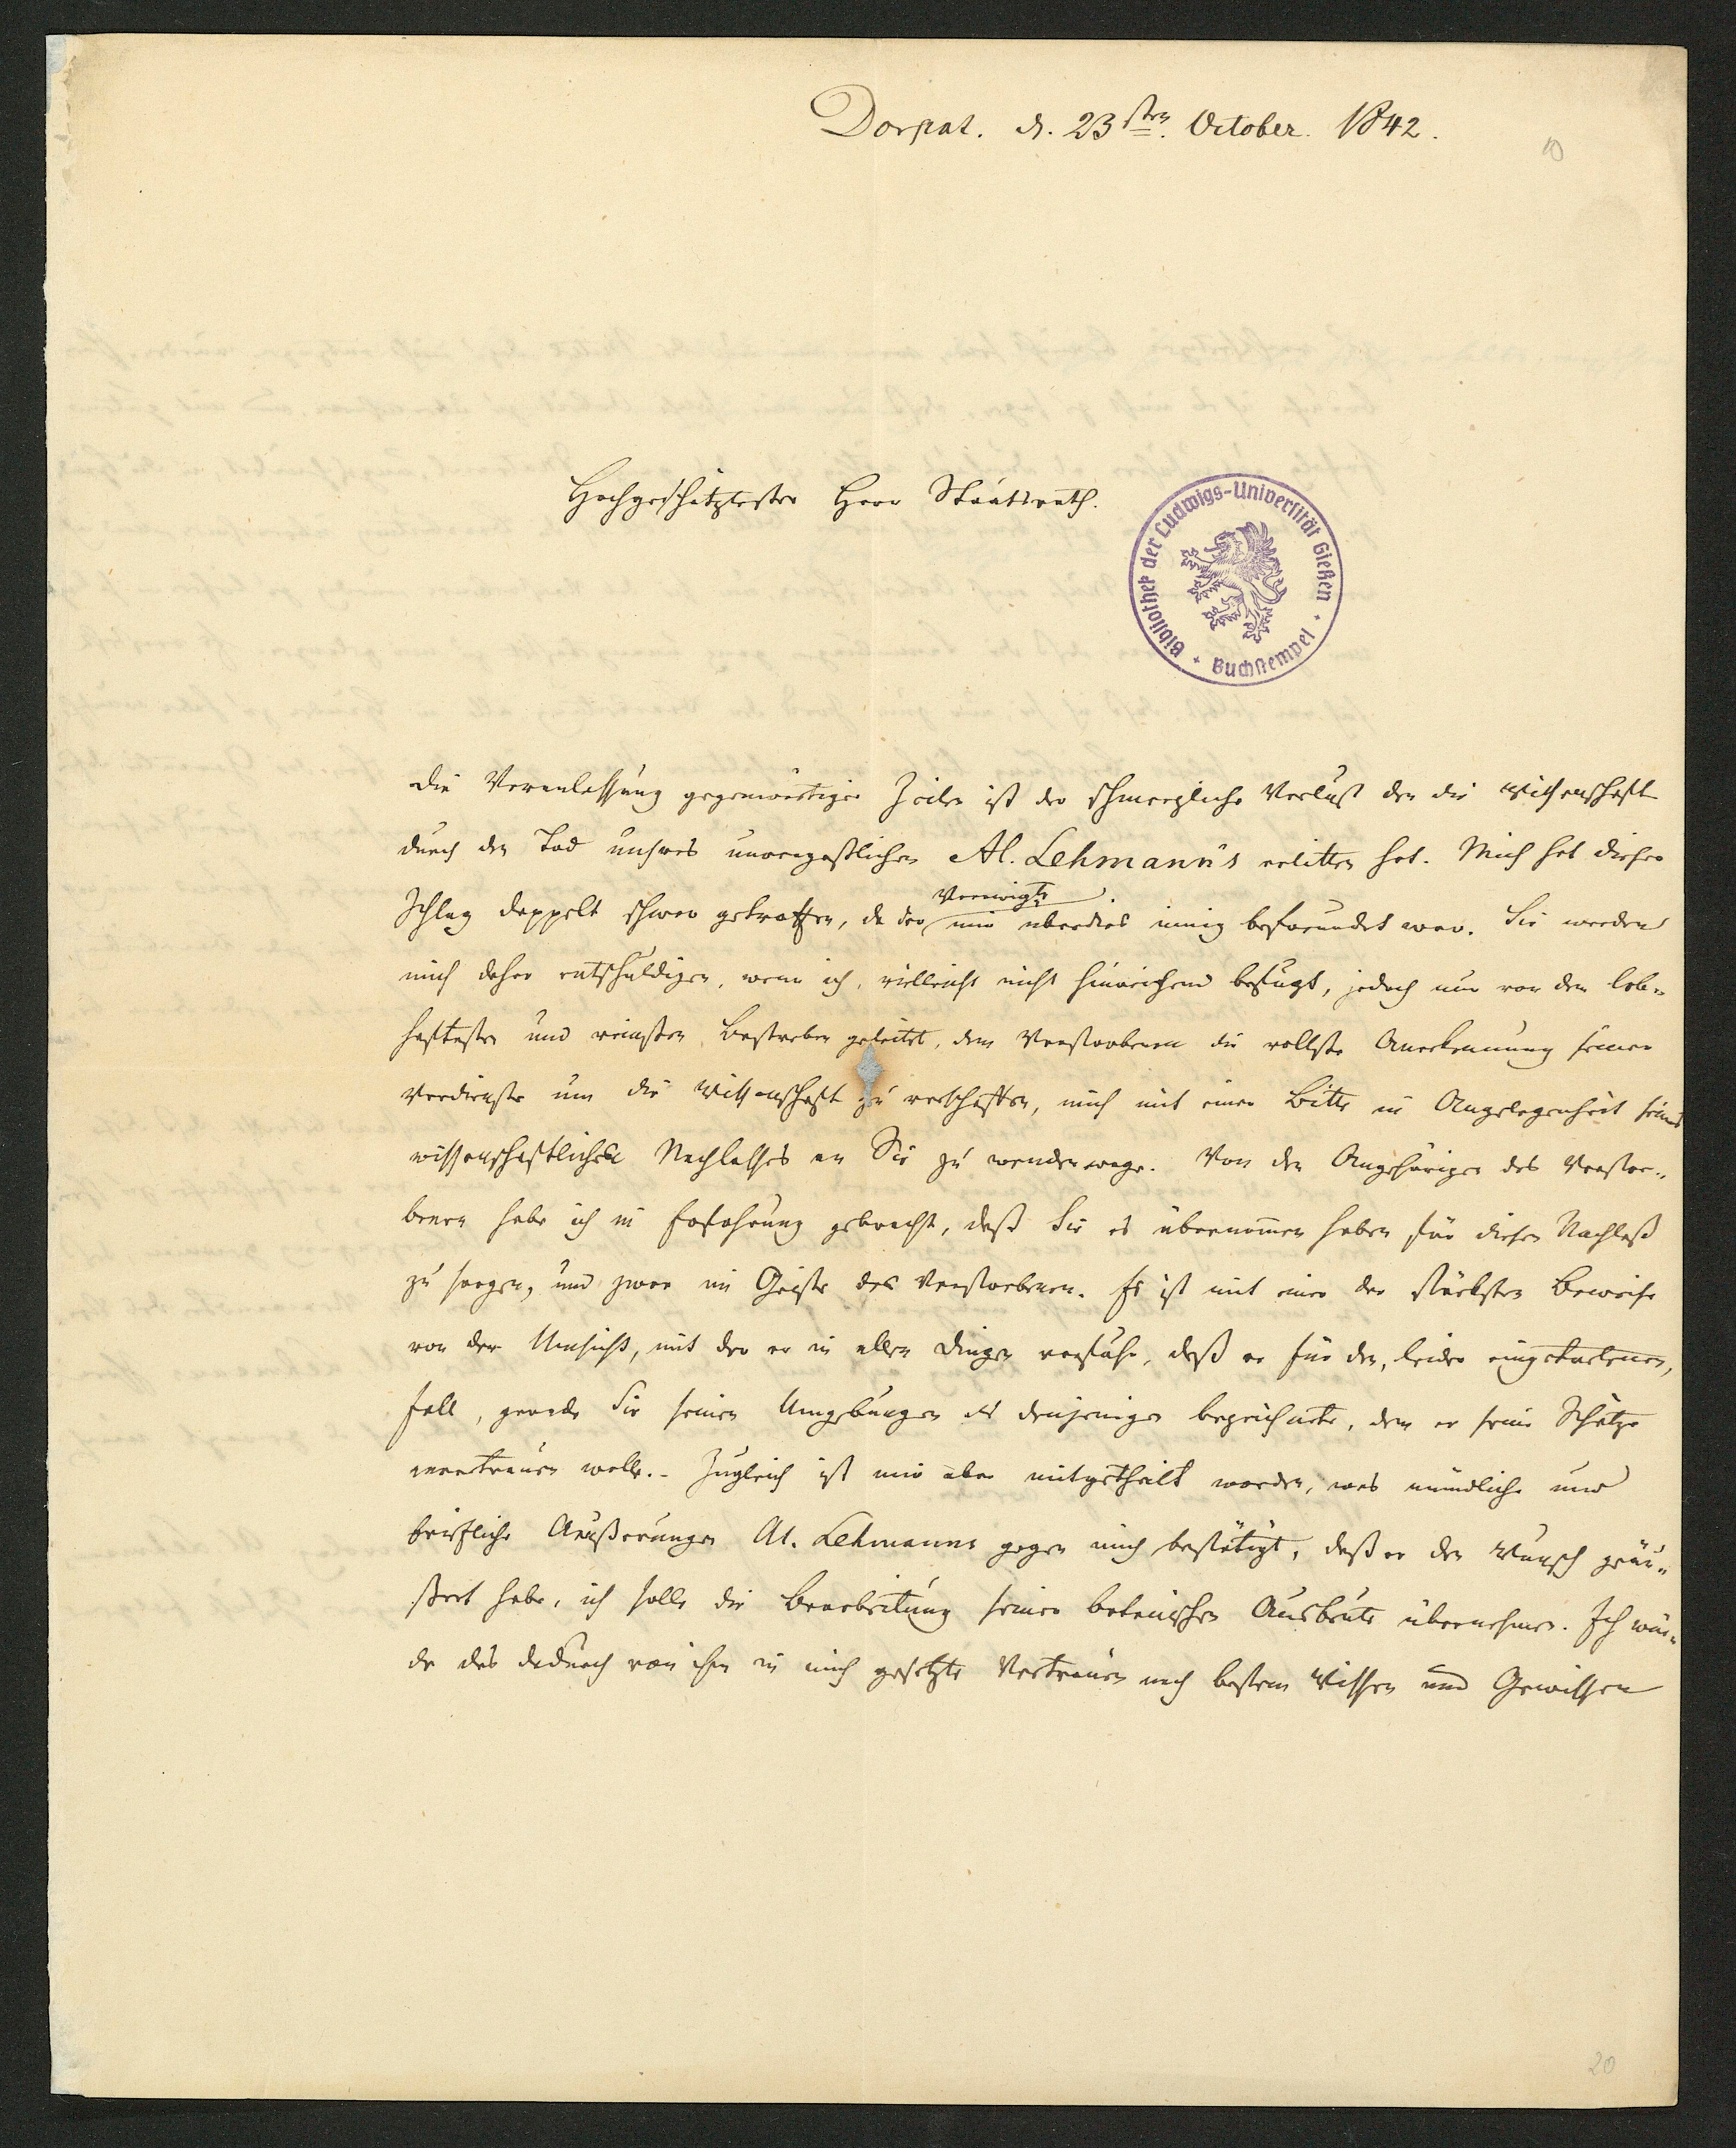 Dorpat. d. 23sten. October. 1842.
10
Hochgeschätztester Herr Staatsrath.
Bibliothek der Ludwigs-Universität Gießen
Buchstempel
Die Veranlassung gegenwärtiger Zeilen ist der schmerzliche Verlust den die Wissenschaft
durch den Tod unsres unvergeßlichen Al. Lehmann's erlitten hat. Mich hat dieser
Schlag doppelt schwer getroffen, da der Verewigte mir überdies innig befreundet war. Sie werden
mich daher entschuldigen, wenn ich, vielleicht nicht hinreichend befugt, jedoch nur von dem leb-
haftesten und reinsten Bestreben geleitet, dem Verstorbenen die vollste Anerkennung seiner
Verdienste um die Wissenschaft zu verschaffen, mich mit einer Bitte in Angelegenheit seines
wissenschaftlichen Nachlasses an Sie zu wenden wage. Von den Angehörigen des Verstor-
benen habe ich in Erfahrung gebracht, daß Sie es übernommen haben für diesen Nachlaß
zu sorgen, und zwar im Geiste des Verstorbenen. Es ist mit einer der stärksten Beweise
von der Umsicht, mit der er in allen Dingen verfuhr, daß er für den, leider eingetretenen,
Fall, gerade Sie seinen Umgebungen als denjenigen bezeichnete, dem er seine Schätze
anvertrauen wolle. - Zugleich ist mir aber mitgetheilt worden, was mündliche und
briefliche Aeußerungen Al. Lehmanns gegen mich bestätigt, daß er den Wunsch geäu-
ßert habe, ich solle die Bearbeitung seiner botanischen Ausbeute übernehmen. Ich wür-
de das dadurch von ihm in mich gesetzte Vertrauen nach bestem Wissen und Gewissen
20